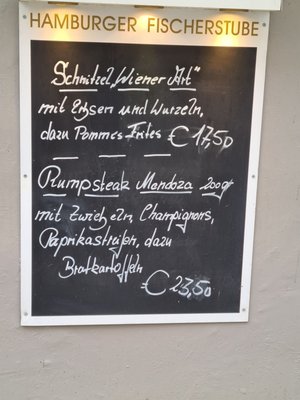 HAMBURGER FISCHERSTUBE
Schnitzel "Wiener Art"
mit Erbsen und Wurzeln,
dazu Pommes Frites €17,50
Rumpsteak Mendoza 200g
mit Zwiebeln, Champignons,
Paprikastreifen, dazu
Bratkartoffeln
€23,50